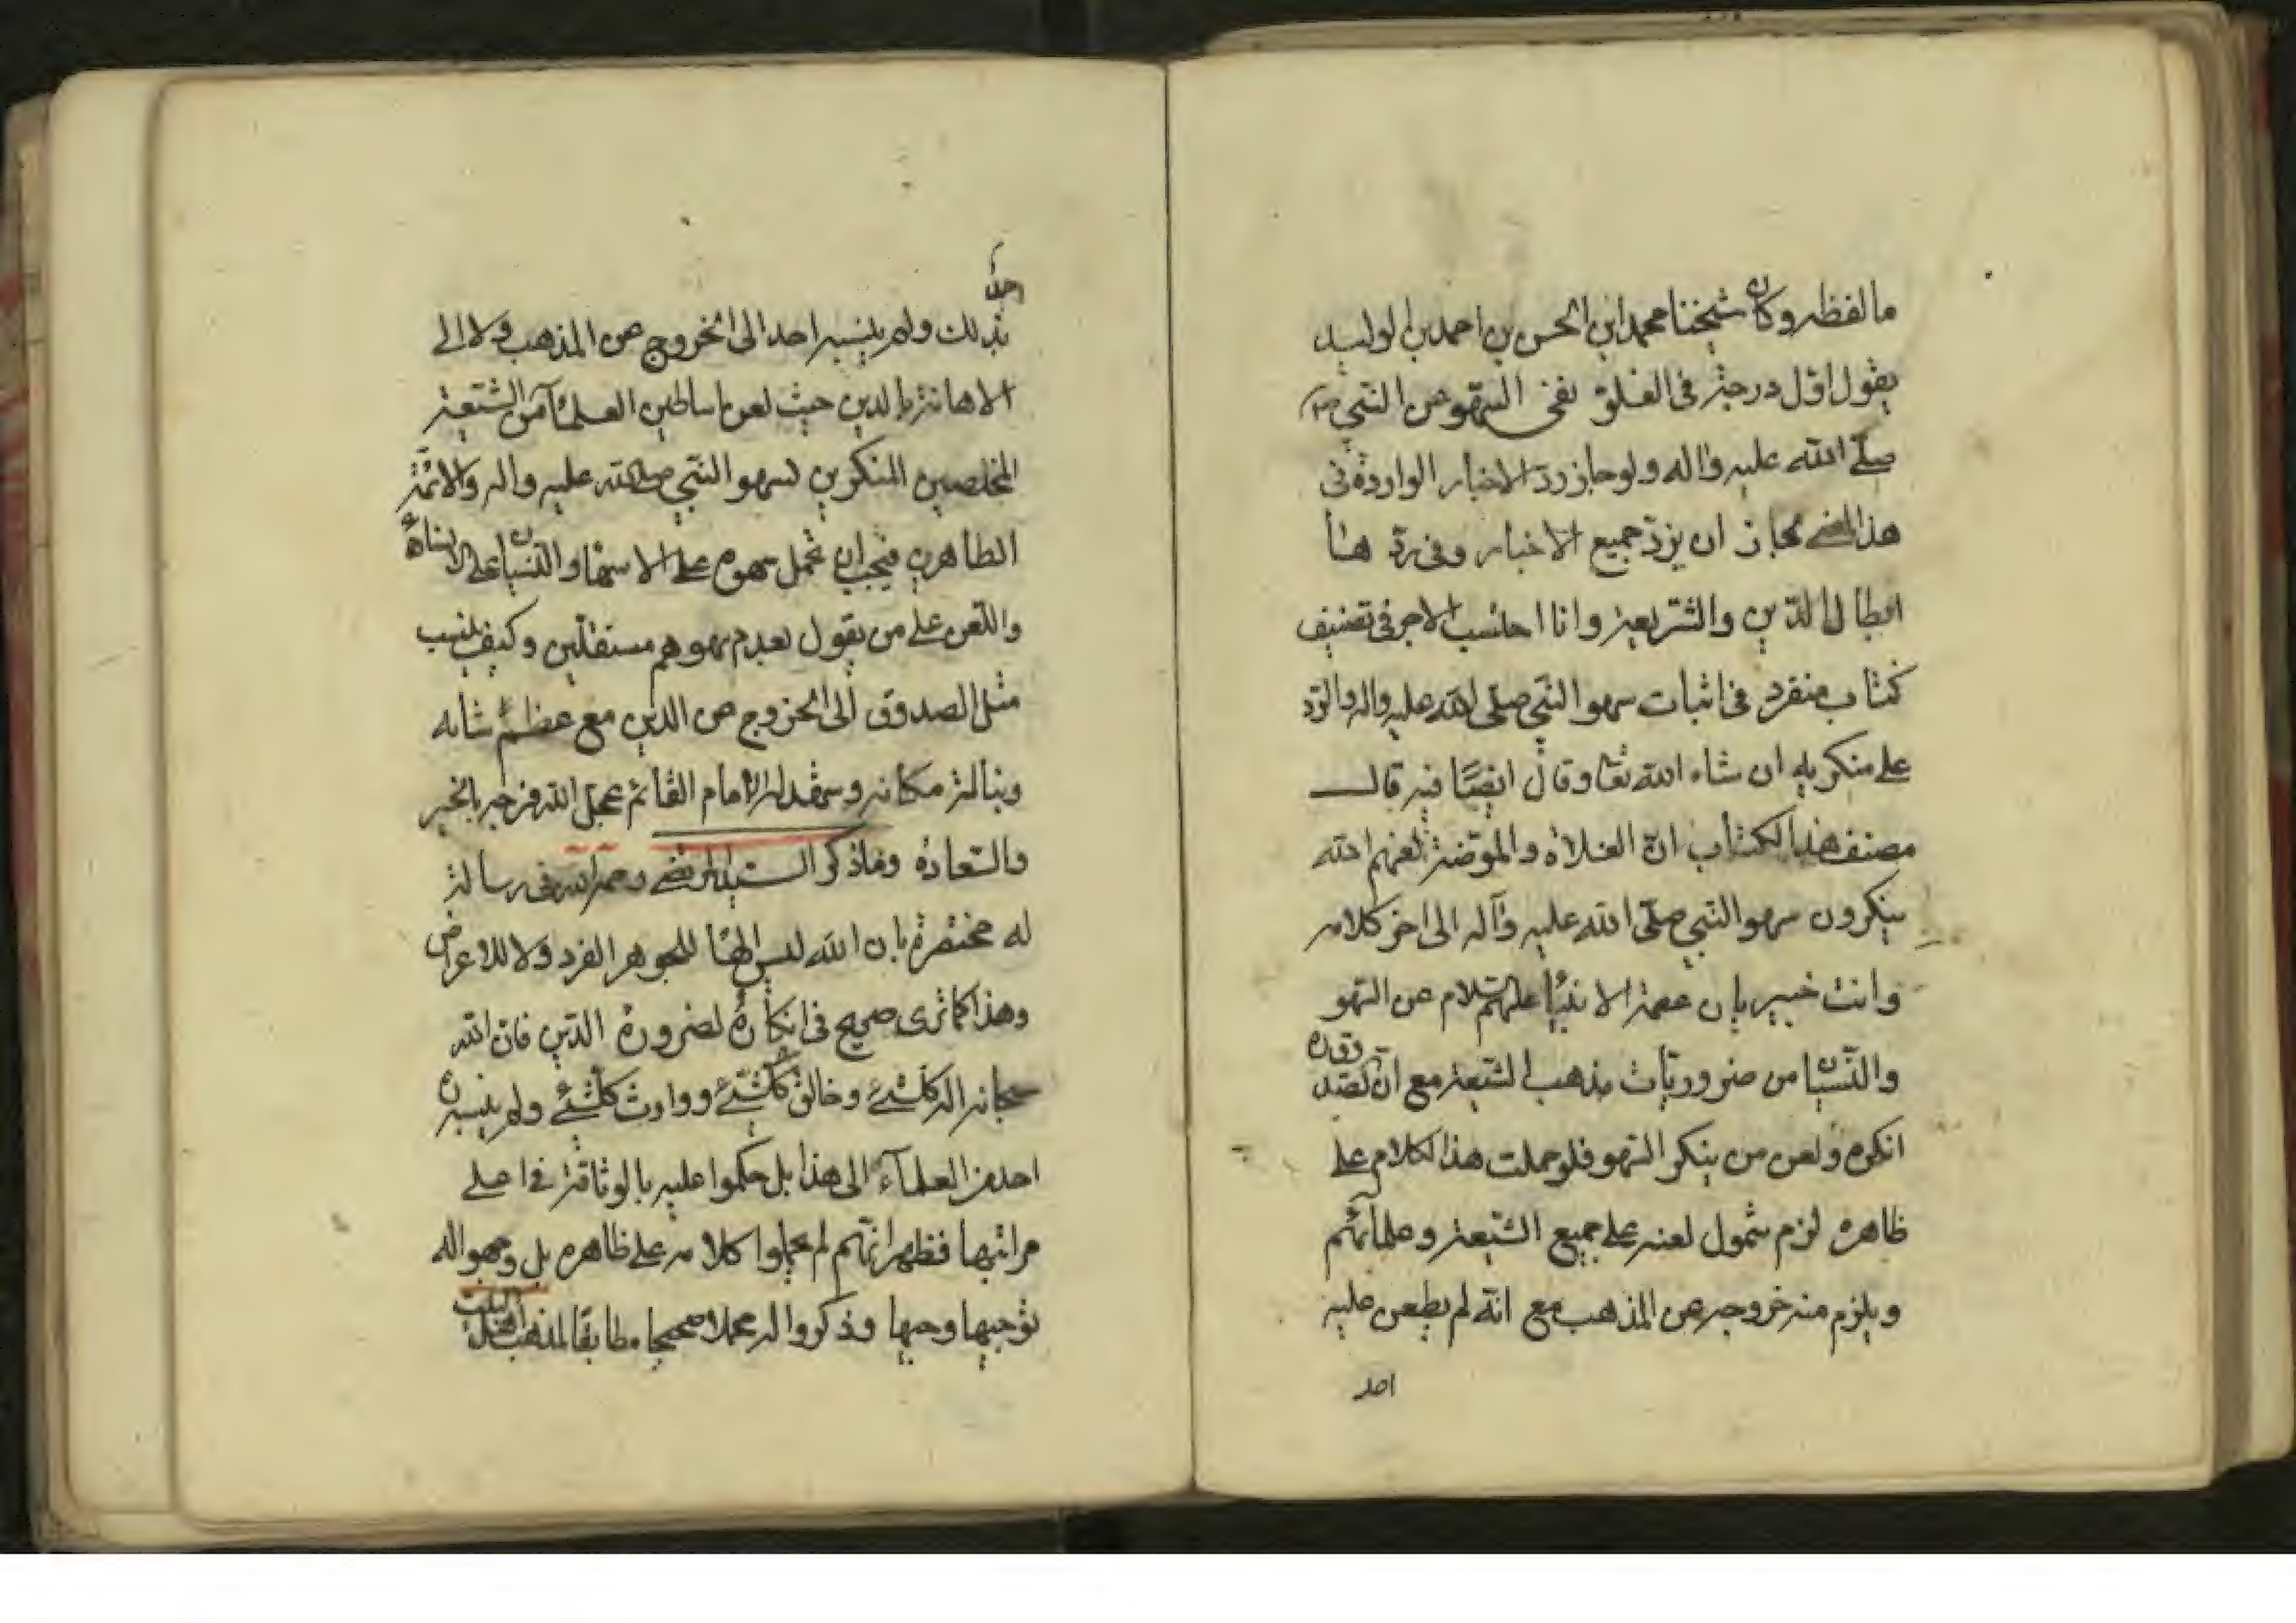 ما لفظه وكان شيخنا محمد ابن الحسن بن احمد بن الوليد
يقول اول درجة في الغلو نفي السهو عن النبي ص
صلى الله عليه واله ولو جاز رد الاخبار الواردة في
هذا المعنى لجاز ان يرد جميع الاخبار وفي ردها
ابطال الدين والشريعة وانا احتسب الاجر في تصنيف
كتاب منفرد في اثبات سهو النبي صلى الله عليه واله والرد
على منكريه ان شاء الله تعا وقال ايضا فيه قال
مصنف هذا الكتاب ان الغلاة والموضة لعنهم الله
ينكرون سهو النبي صلى الله عليه وآله الى اخر كلامه
وانت خبير بان عصمة الانبيا عليهم السلام عن السهو
والنسيان من ضروريات مذهب الشيعة مع ان الصدوق ره
انكره ولعن من ينكر السهو فلو حملت هذا الكلام على
ظاهره لزم شمول لعنه على جميع الشيعة وعلمائهم
ويلزم منه خروجه عن المذهب مع انه لم يطعن عليه
احد
احد
بذلك ولم ينسبه احد الى الخروج عن المذهب ولا الى
الاهانة بالدين حيث لعن اساطين العلمآء من الشيعة
المخلصين المنكرين لسهو النبي صلى الله عليه واله والائمة
الطاهرين فيجب ان تحمل سهوه على الاسها والنسيان على الانساء
واللعن على من يقول بعدم سهوهم مستقلين وكيف ينسب
مثل الصدوق الى الخروج عن الدين مع عظم شانه
ونبالة مكانه وشهد له الامام القائم عجل الله فرجه بالخير
والسعادة وما ذكر السيد المرتضى رحمه الله في رسالة
له مختصرة بان الله ليس الها للجوهر الفرد ولا للاعراض
وهذا كما ترى صريح في انكاره لضرورة الدين فان الله
سبحانه اله كلشئ وخالق كلشئ ووارث كلشئ ولم ينسبه
احد من العلمآء الى هذا بل حكموا عليه بالوثاقة في اعلى
مراتبها فظهر انهم لم يحملوا كلامه على ظاهره بل وجهوا له
توجيها وجيها وذكروا له محملا صحيحا مطابقا لمذهب اهل البيت